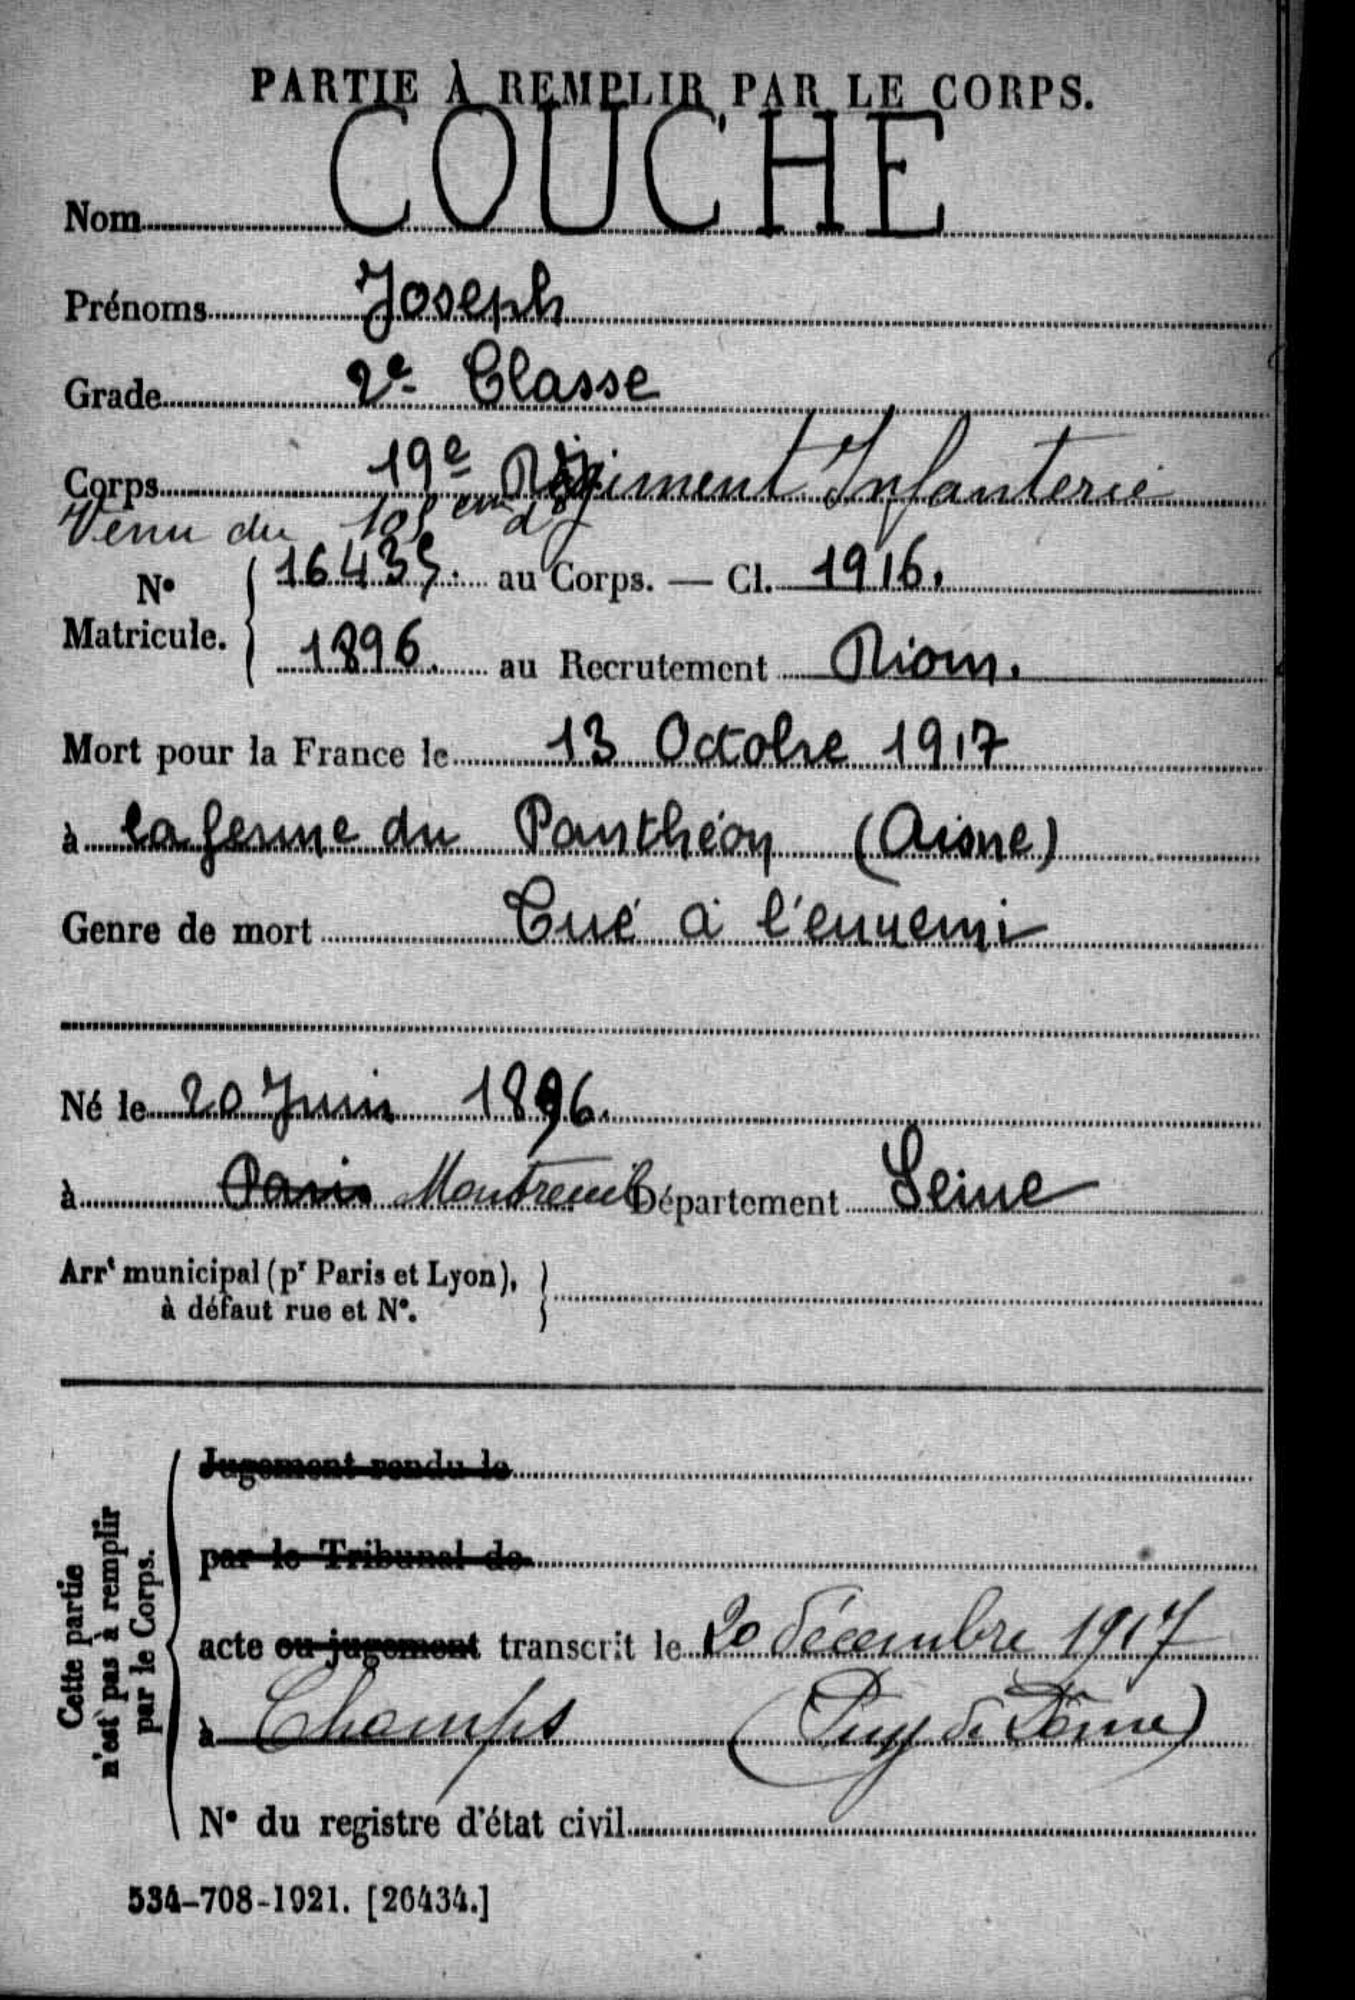 PARTIE À REMPLIR PAR LE CORPS.
Nom COUCHE
Prénoms Joseph
Grade 2e Classe
Corps 19e Régiment Infanterie
Venu du 105em d°
N° Matricule. 16435. au Corps. — Cl. 1916.
1896. au Recrutement Riom.
Mort pour la France le 13 Octobre 1917
à la ferme du Panthéon (Aisne)
Genre de mort Tué à l'ennemi
Né le 20 Juin 1896.
à Paris Montreuil Département Seine
Arrt municipal (pr Paris et Lyon),
à défaut rue et N°.
Cette partie
n'est pas à remplir
par le Corps.
Jugement rendu le
par le Tribunal de
acte ou jugement transcrit le 20 décembre 1917
à Champs (Puy de Dôme)
N° du registre d'état civil
534-708-1921. [26434.]